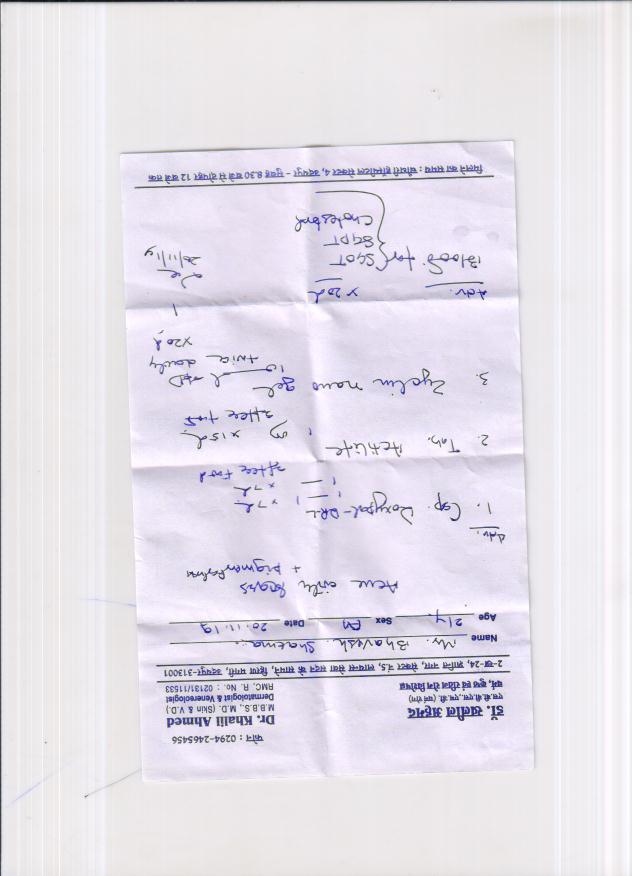 फोन : 0294-2465456
डॉ. खलील अहमद
एम.बी.बी.एस., एम.डी. (चर्म रोग)
चर्म, कुष्ठ एवं रतिज रोग विशेषज्ञ
Dr. Khalil Ahmed
M.B.B.S., M.D. (Skin & V.D.)
Dermatologist & Venereologist
RMC. R. No. : 02131/11533
2-ख-24, शान्ति नगर, सेक्टर नं.5, लायन्स सेवा सदन के सामने, हिरण मगरी, उदयपुर-313001
Name Mr. Bhavesh Sharma
Age 21y. Sex M Date 20.11.19
Acne with
+ pigmentation
Adv.
1. Cap. Doxypal-DR-L
1 — 1 x 7d.
1 — x 7d
after food
2. Tab. Actilife
1 x 15d.
after food
3. Zyclin nano gel
twice daily
x 20d
Adv. x 20d
Blood for { SGOT
SGPT
Cholesterol
20/11/19
मिलने का समय : चौधरी हॉस्पीटल सेक्टर 4, उदयपुर - सुबह 8.30 बजे से दोपहर 12 बजे तक